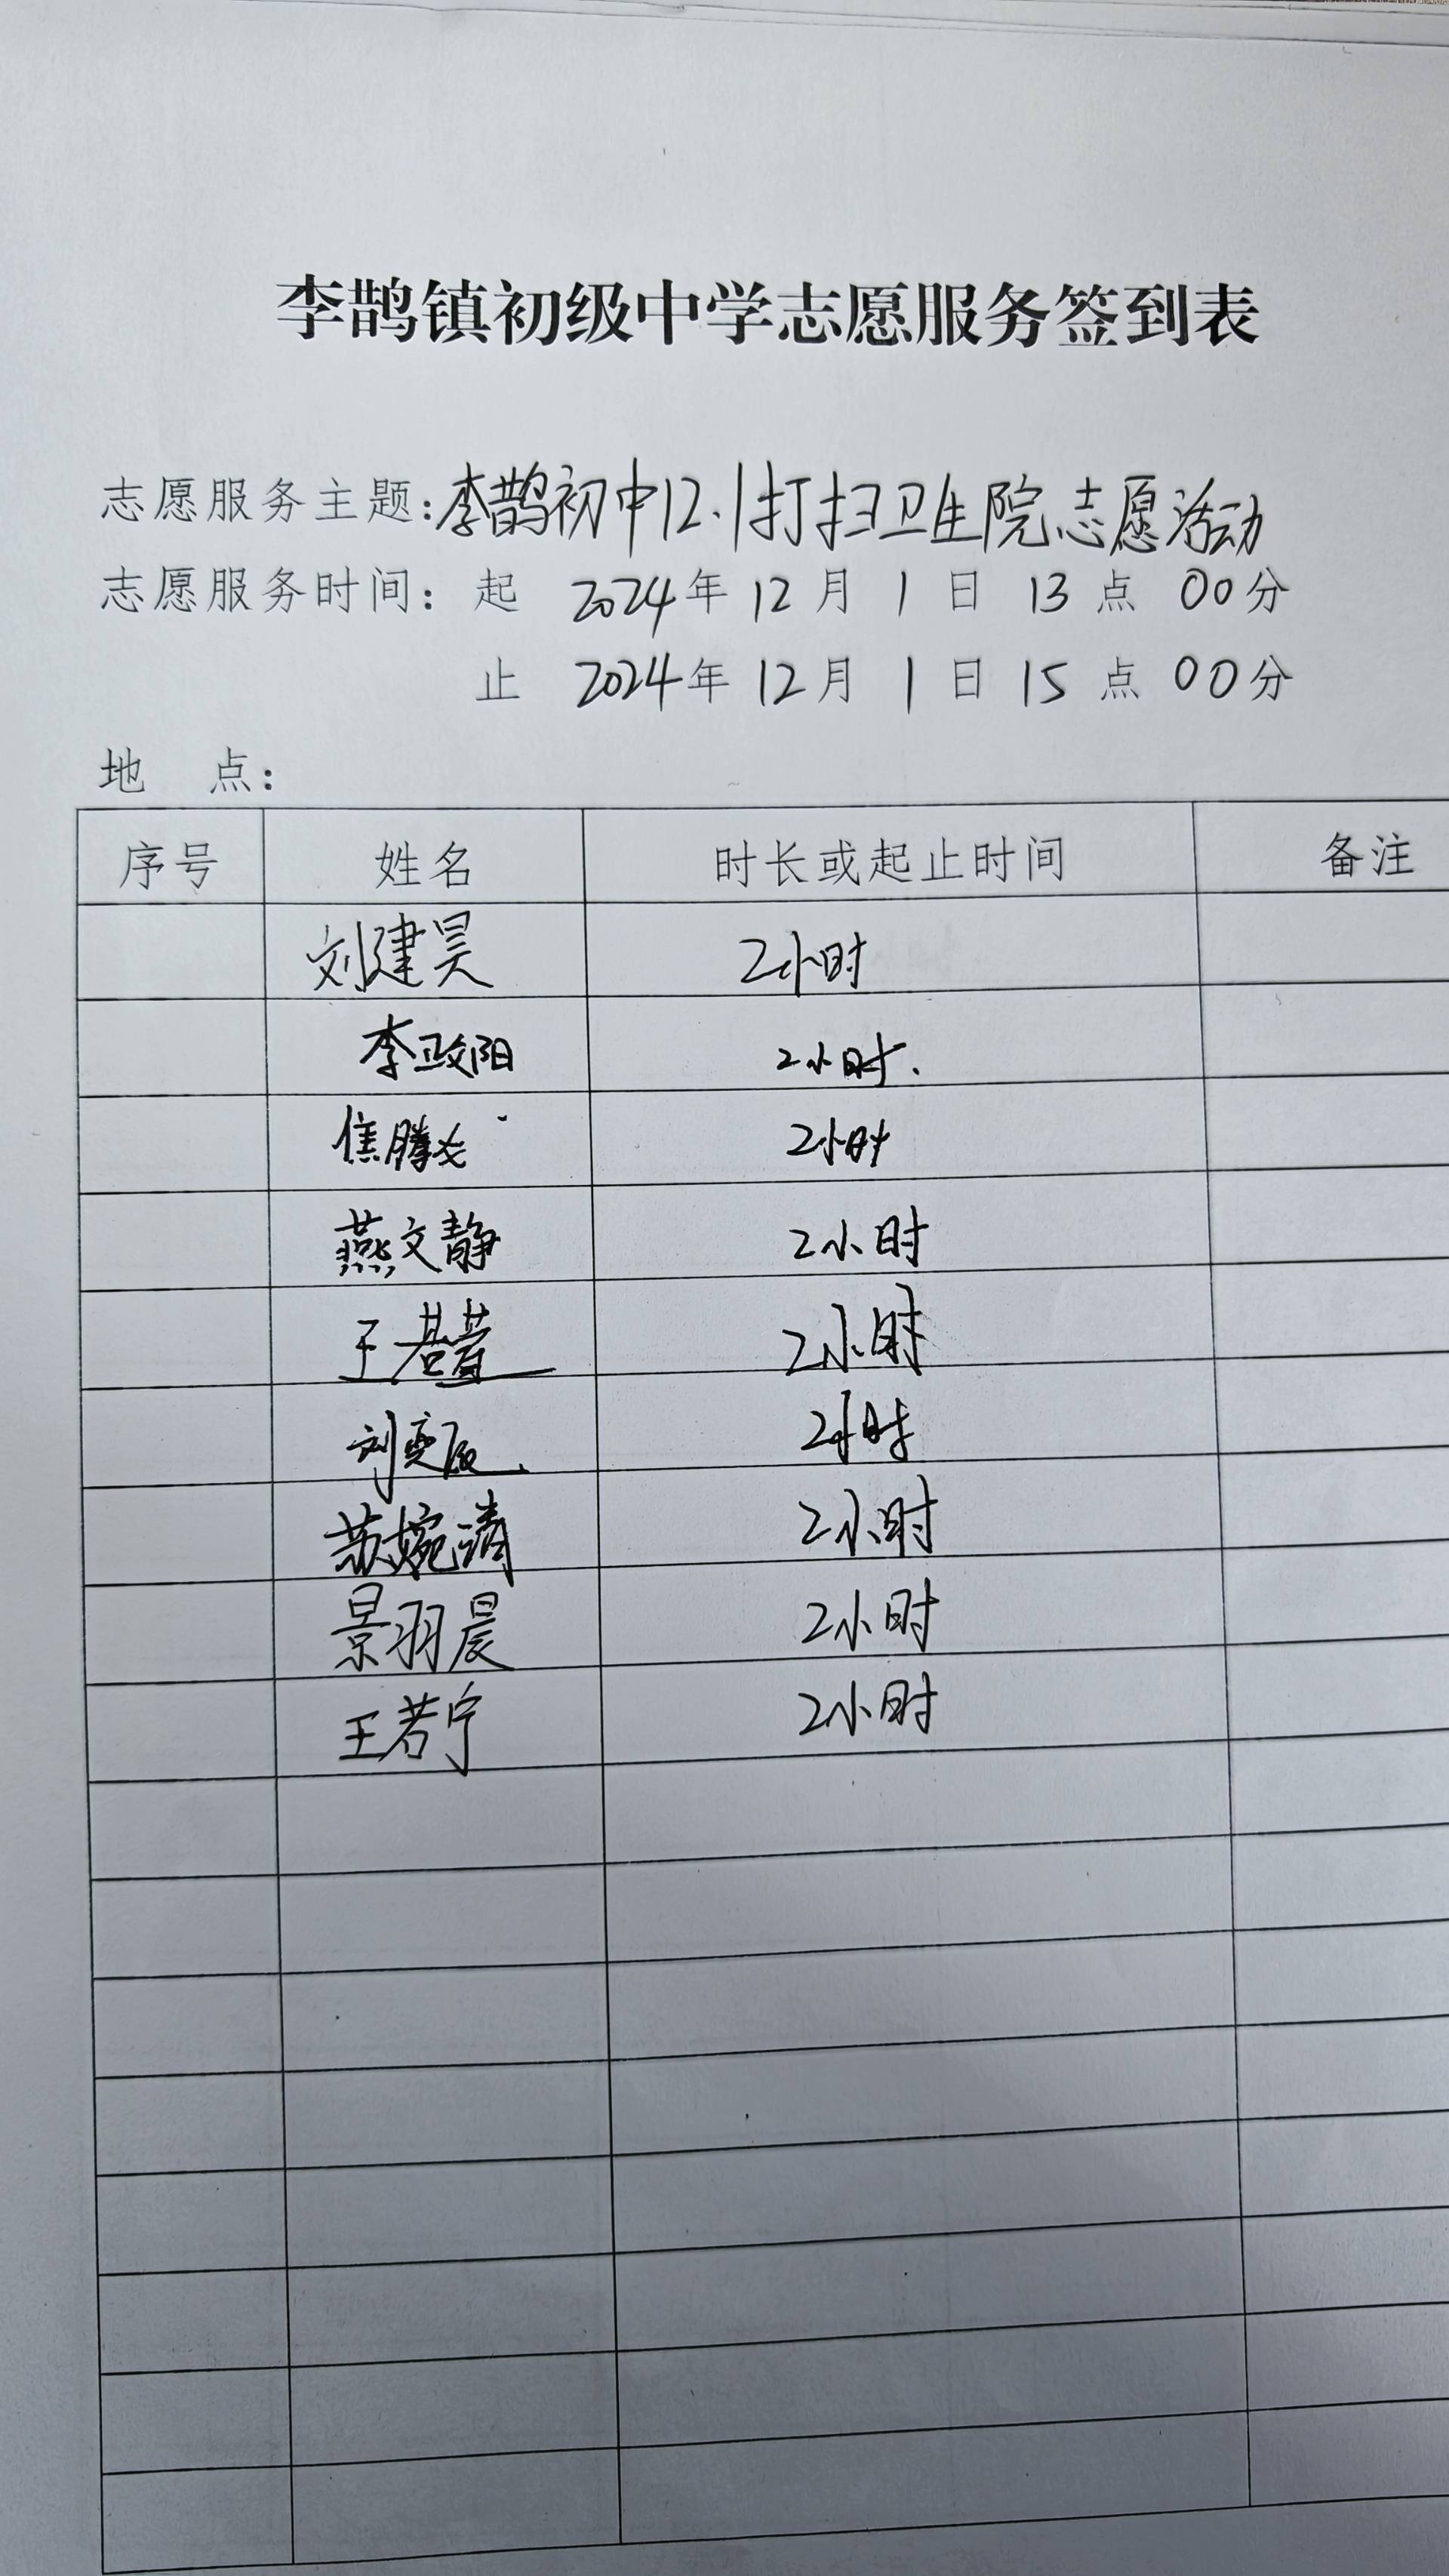 李鹊镇初级中学志愿服务签到表
志愿服务主题:李鹊初中12.1打扫卫生院志愿活动
志愿服务时间: 起 2024年 12 月 1 日 13 点 00分
止 2024年 12 月 1 日 15 点 00分
地 点:
序号 姓名 时长或起止时间 备注
刘建昊 2小时
李政阳 2小时.
焦腾 2小时
燕文静 2小时
王若萱 2小时
刘奕 2小时
苏婉清 2小时
景羽晨 2小时
王若宁 2小时